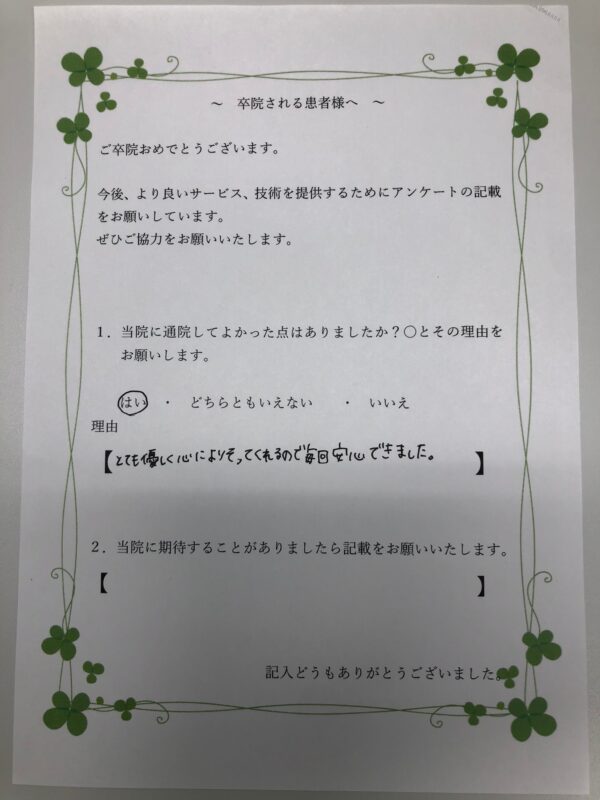 ～ 卒院される患者様へ ～
ご卒院おめでとうございます。
今後、より良いサービス、技術を提供するためにアンケートの記載
をお願いしています。
ぜひご協力をお願いいたします。
1．当院に通院してよかった点はありましたか？〇とその理由を
お願いします。
はい ・ どちらともいえない ・ いいえ
理由
【とても優しく心によりそってくれるので毎回安心できました。】
2．当院に期待することがありましたら記載をお願いいたします。
【 】
記入どうもありがとうございました。